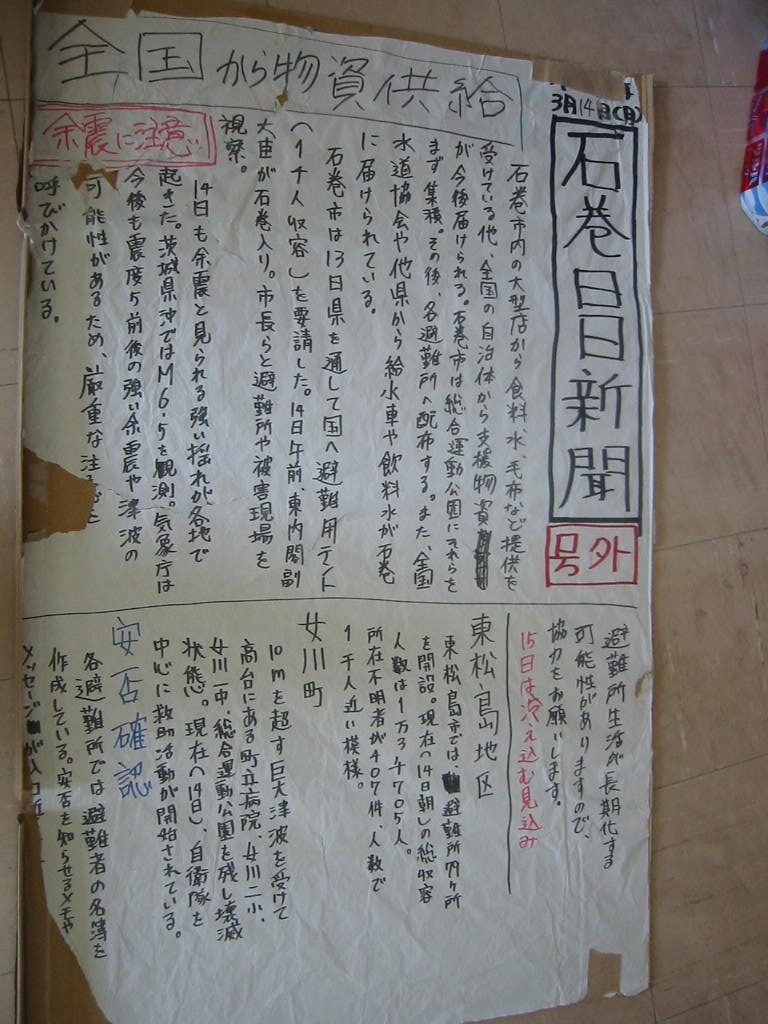 3月14日(月)
石巻日日新聞
号外
全国から物資供給
石巻市内の大型店から食料、水、毛布など提供を
受けている他、全国の自治体から支援物資
が今後届けられる。石巻市は総合運動公園にそれらを
まず集積。その後、各避難所へ配布する。また、全国
水道協会や他県から給水車や飲料水が石巻
に届けられている。
石巻市は13日県を通して国へ避難用テント
(1千人収容)を要請した。14日午前、東内閣副
大臣が石巻入り。市長らと避難所や被害現場を
視察。
余震に注意
14日も余震と見られる強い揺れが各地で
起きた。茨城県沖ではM6.5を観測。気象庁は
今後も震度5前後の強い余震や津波の
可能性があるため、厳重な注意を
呼びかけている。
避難所生活が長期化する
可能性がありますので、
協力をお願いします。
15日は冷え込む見込み
東松島地区
東松島市では、避難所ヶ所
を開設。現在(14日朝)の総収容
人数は1万3千705人。
所在不明者が407件、人数で
1千人近い模様。
女川町
10mを超す巨大津波を受けて
高台にある町立病院、女川二小、
女川一中、総合運動公園を残し壊滅
状態。現在(14日)、自衛隊を
中心に救助活動が開始されている。
安否確認
各避難所では避難者の名簿を
作成している。安否を知らせるメモや
メッセージが入口近